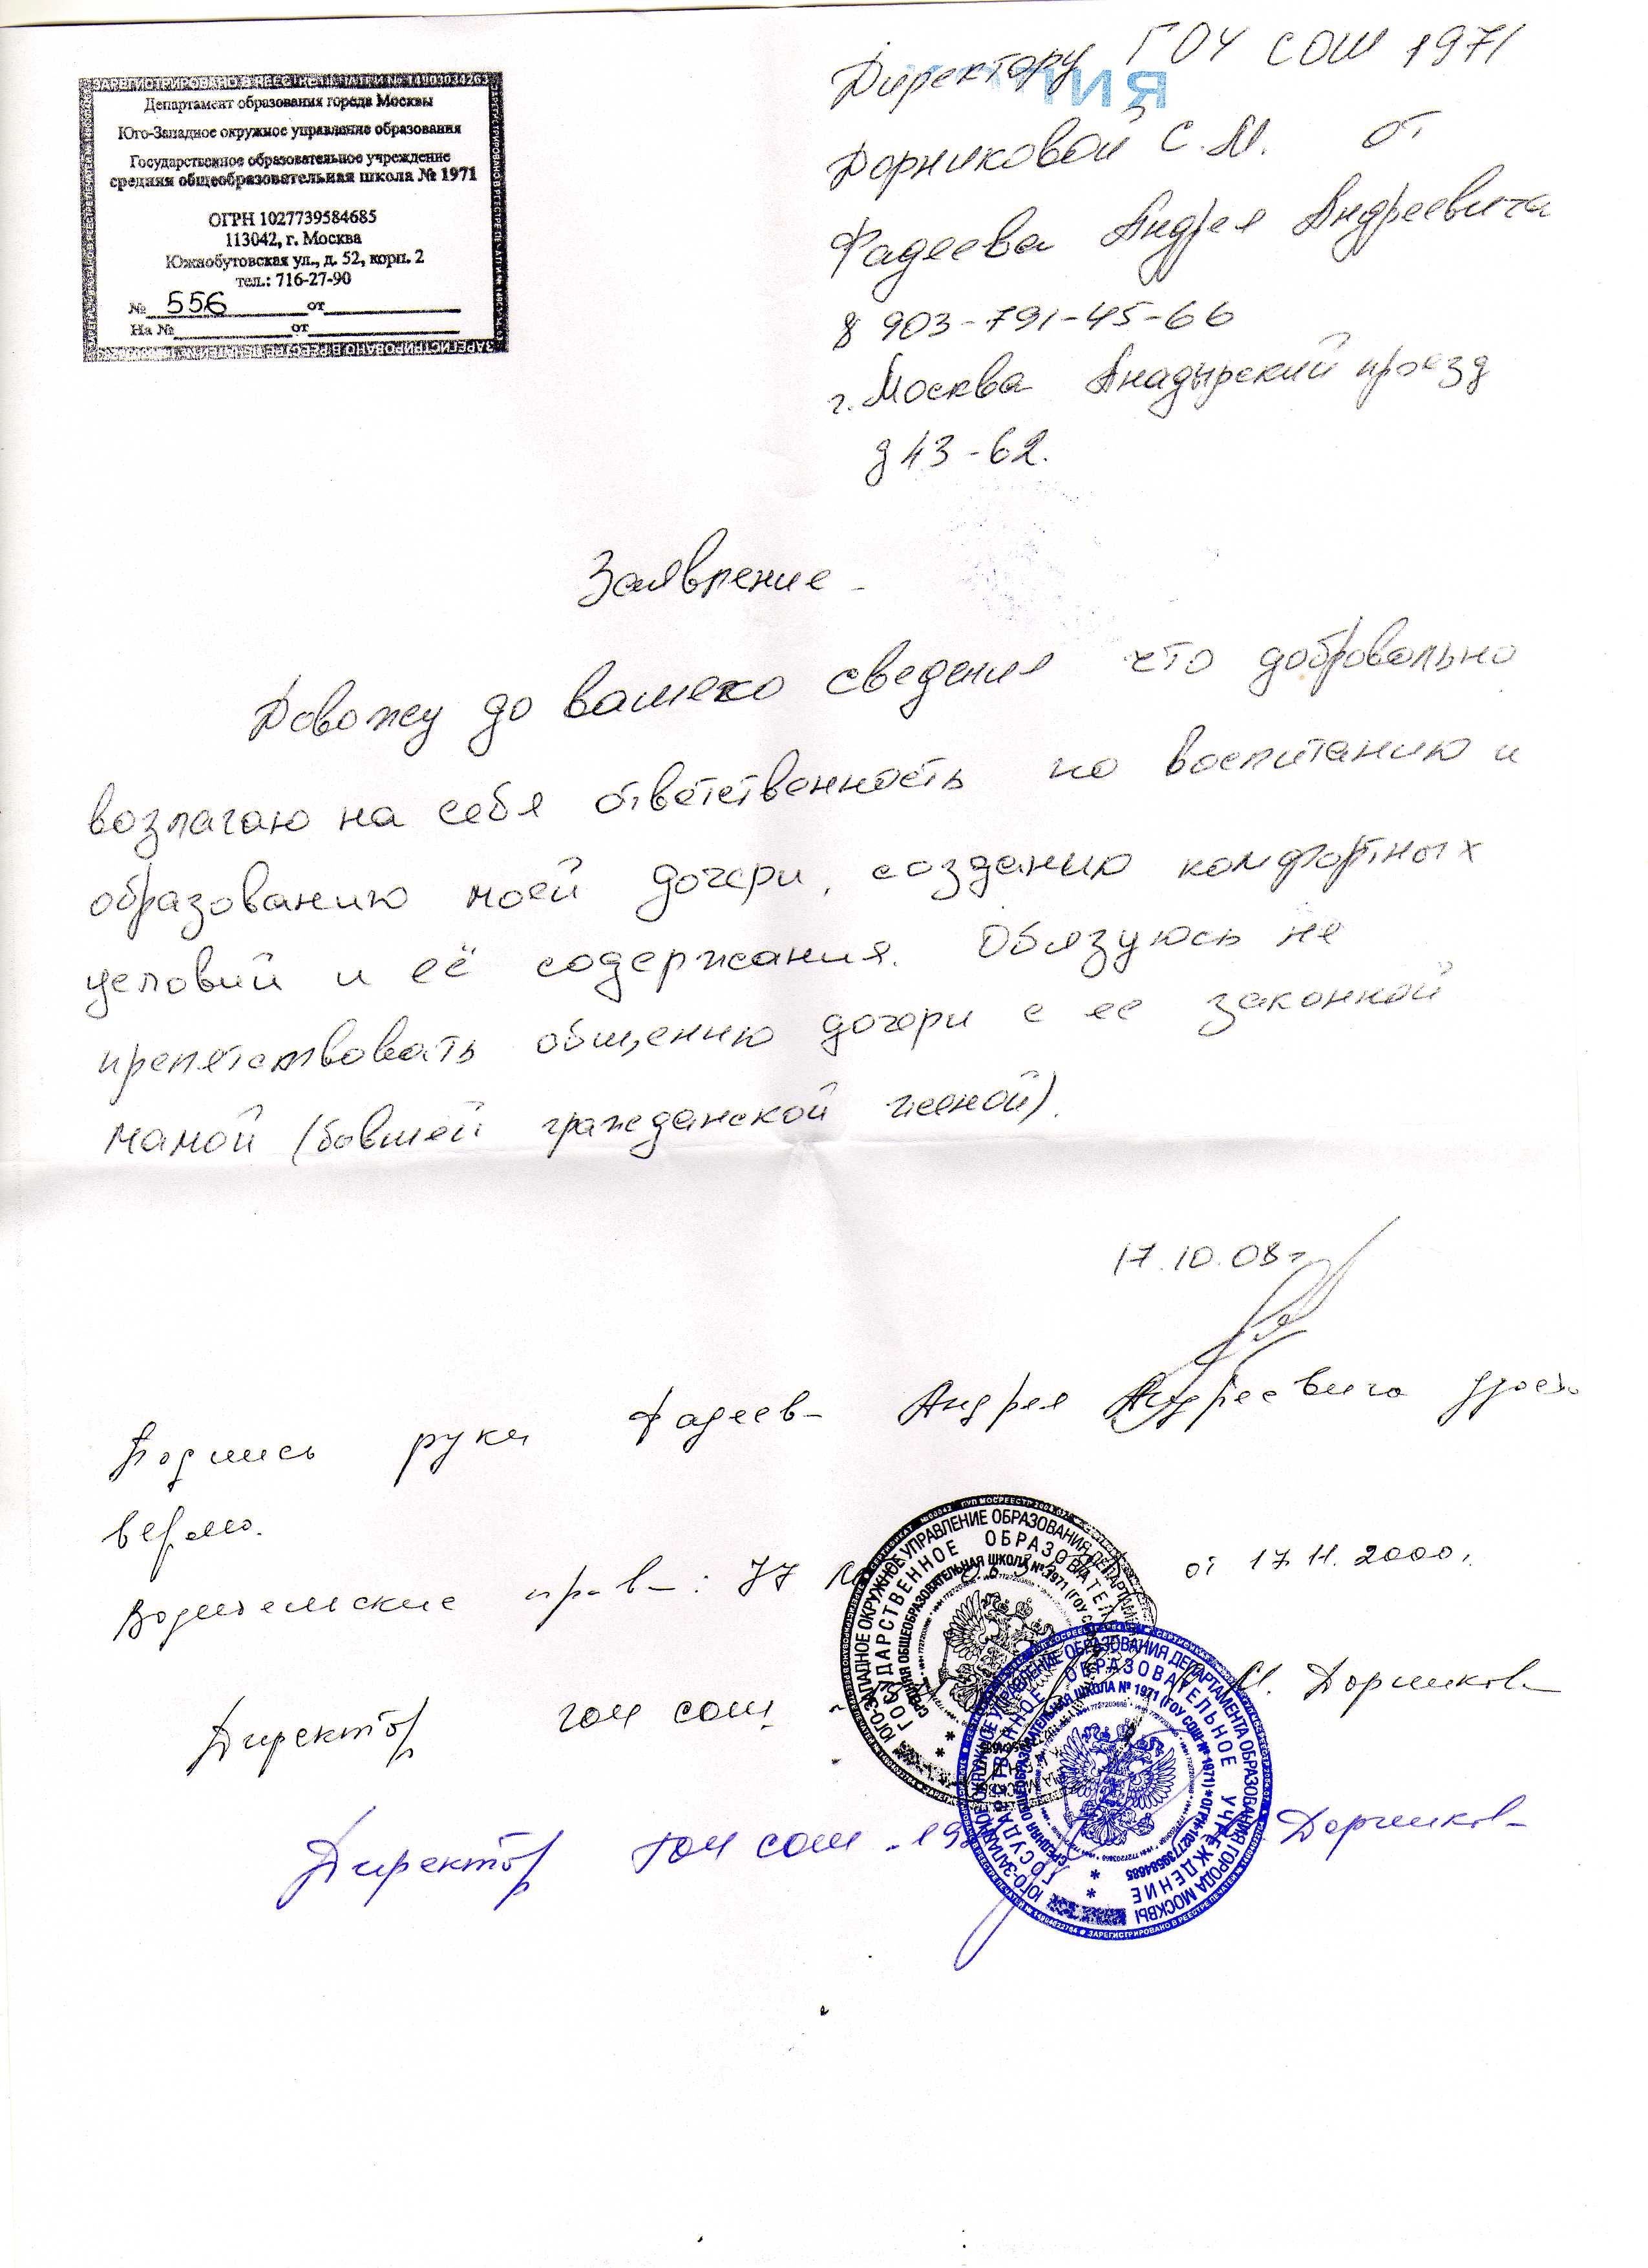 ЗАРЕГИСТРИРОВАНО В РЕЕСТРЕ ПЕЧАТИ № 14903034263
Департамент образования города Москвы
Юго-Западное окружное управление образования
Государственное образовательное учреждение
средняя общеобразовательная школа № 1971
ОГРН 1027739584685
113042, г. Москва
Южнобутовская ул., д. 52, корп. 2
тел.: 716-27-90
№ 556 от
На № от
Директору ГОУ СОШ 1971
Дорниковой С.М. от
Фадеева Андрея Андреевича
8 903-791-45-66
г. Москва Анадырский проезд
д 43-62.
Заявление
Довожу до вашего сведения что добровольно
возлагаю на себя ответственность по воспитанию и
образованию моей дочери, созданию комфортных
условий и её содержания. Обязуюсь не
препятствовать общению дочери с ее законной
мамой (бывшей гражданской женой).
17.10.08г
Подпись руки Фадеева Андрея Андреевича удосто
веряю.
Водительские права: 77 от 17.11.2000г.
Директор ГОУ СОШ М. Дорникова
Директор ГОУ СОШ -19 Дорникова
ЮГО-ЗАПАДНОЕ ОКРУЖНОЕ УПРАВЛЕНИЕ ОБРАЗОВАНИЯ ДЕПАРТАМЕНТА ОБРАЗОВАНИЯ ГОРОДА МОСКВЫ
ГОСУДАРСТВЕННОЕ ОБРАЗОВАТЕЛЬНОЕ УЧРЕЖДЕНИЕ
СРЕДНЯЯ ОБЩЕОБРАЗОВАТЕЛЬНАЯ ШКОЛА № 1971 (ГОУ СОШ № 1971) * ОГРН 1027739584685